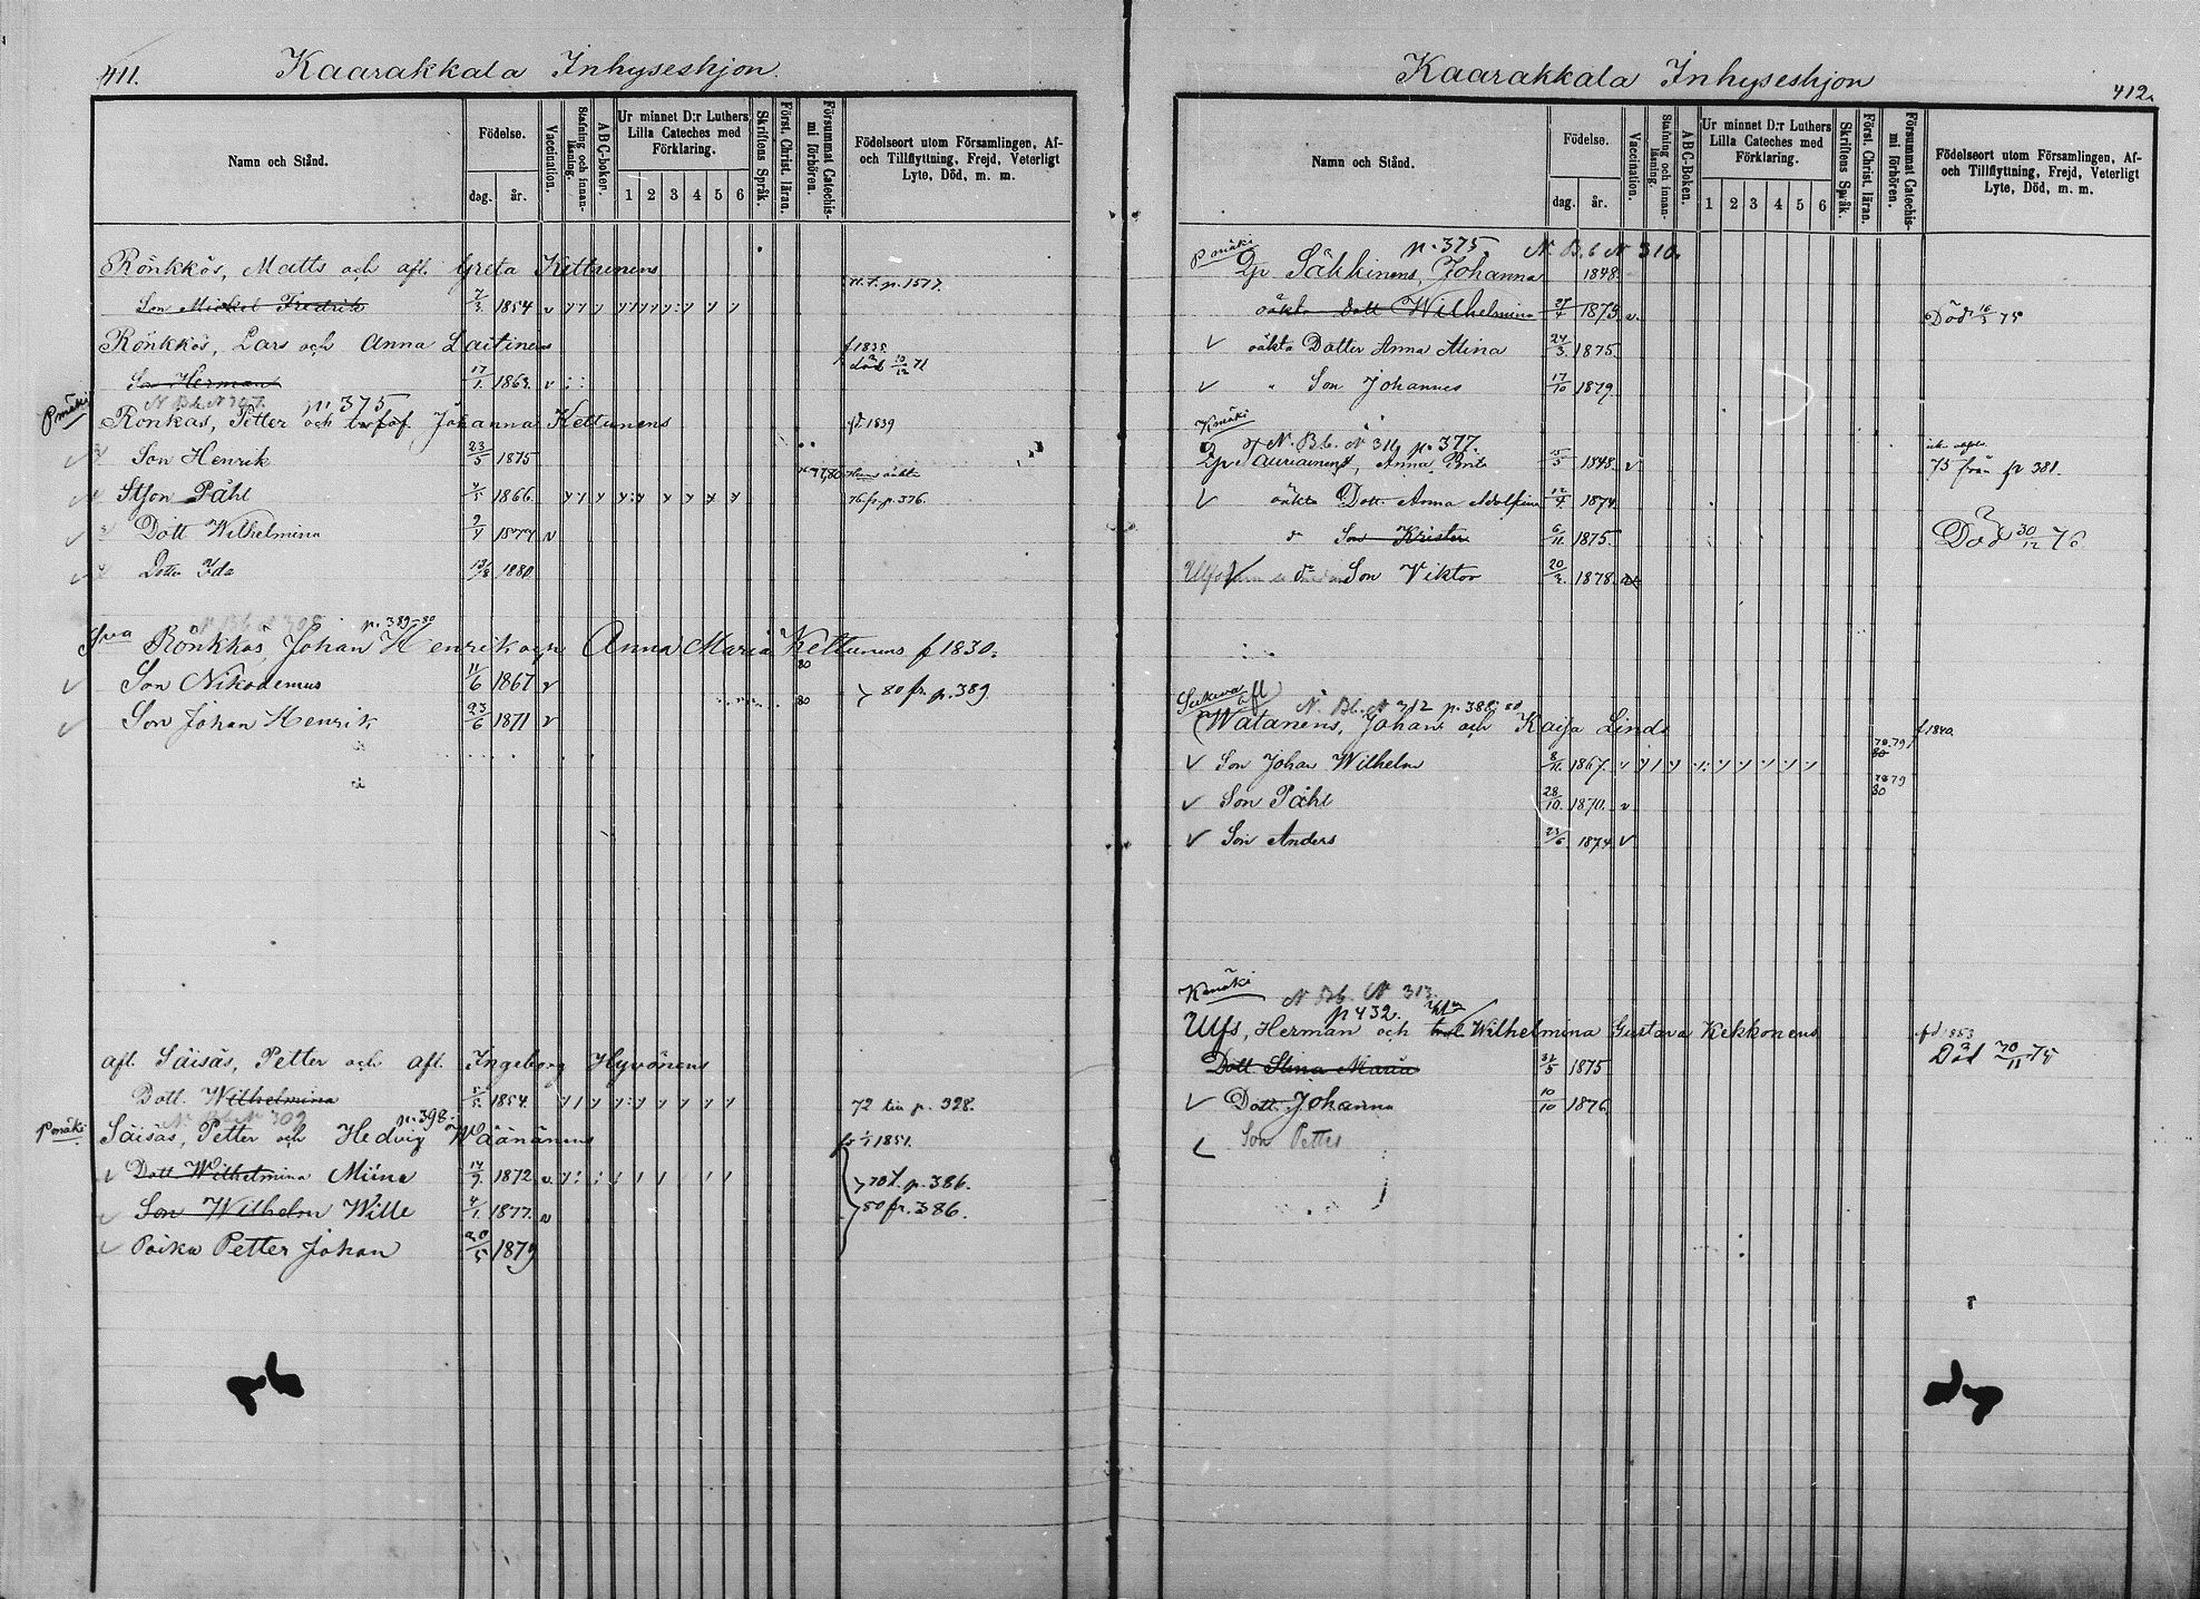 411.
Kaarakkala Inhyseshjon.
Namn och Stånd.
Födelse.
dag. år.
Vaccination.
Stafning och innan-läsning.
ABC-boken.
Ur minnet D:r Luthers Lilla Cateches med Förklaring.
1 2 3 4 5 6
Skriftens Språk.
Först. Christ. läran.
Försummat Catechis-mi förhören.
Födelseort utom Församlingen, Af- och Tillflyttning, Frejd, Veterligt Lyte, Död, m. m.
Rönkkös, Matts och afl. Greta Kettunens
Son Mickel Fredrik 7/3 1854 v
Rönkkös, Lars och Anna Laitinens f 1838.
Son Herman 17/1. 1863. v död 10/12 71
Pmäki N Bb N 307. p. 375
Rönkäs, Petter och Johanna Kettunens fd 1839
Son Henrik 23/5 1875
Stson Påhl 4/5 1866. 76 fr. p. 376.
Dott Wilhelmina 9/4 1877 v
Dotter Ida 1880
N Bb N 308 p. 389-80
Rönkkös, Johan Henrik o Anna Maria Kettunens f 1830.
80
Son Nikodemus 11/6 1867 v 80 fr. p. 389.
Son Johan Henrik 23/6 1871 v
80
afl. Säisäs, Petter och afl. Ingeborg Hyvönens
Dott. Wilhelmina 1854. 72 p. 328.
Pmäki N. Bb N 309 p. 398
Säisäs, Petter och Hedvig Wäänänens 1851.
Dott Wilhelmina Miina 14/9. 1872 v. 70 t. p. 386.
Son Wilhelm Wille 4/1. 1877. v 80 fr. 386.
Poika Petter Johan 20/5 1879
Kaarakkala Inhyseshjon
412.
Namn och Stånd.
Födelse.
dag. år.
Vaccination.
Stafning och innan-läsning.
ABC-Boken.
Ur minnet D:r Luthers Lilla Cateches med Förklaring.
1 2 3 4 5 6
Skriftens Språk.
Först. Christ. läran.
Försummat Catechis-mi förhören.
Födelseort utom Församlingen, Af- och Tillflyttning, Frejd, Veterligt Lyte, Död, m. m.
Pmäki p. 375 N. B.b N 310.
Qp Säkkinens, Johanna 1848.
oäkta Dott Wilhelmina 1873. v. Död 16/3 75
oäkta Dotter Anna Mina 24/3. 1875.
" Son Johannes 17/10 1879.
Kmäki
N. Bb. N 311 p. 377.
Qp Tauriainens, Anna Brita 1848. v 75 från p 381.
oäkta Dott. Anna Adolfina 12/4 1874.
Son Krister 6/11. 1875. Död 30/12 76
Son Viktor 20/3. 1878.
Sukeva afl
N. Bb. N 312 p. 388-80
Watanens, Johan och Kaisa Linds f 1840.
Son Johan Wilhelm 8/11. 1867. 78.79. 80
Son Påhl 28/10. 1870. v 78 79 80
Son Anders 23/6. 1874 v
Kmäki N Bb. N 313.
p 432.
Ulfs, Herman och Wilhelmina Gustava Kekkonens fd 1853
Dott Stina Maria 31/5 1875 Död
Dott. Johanna 10/10 1876
Son Petter